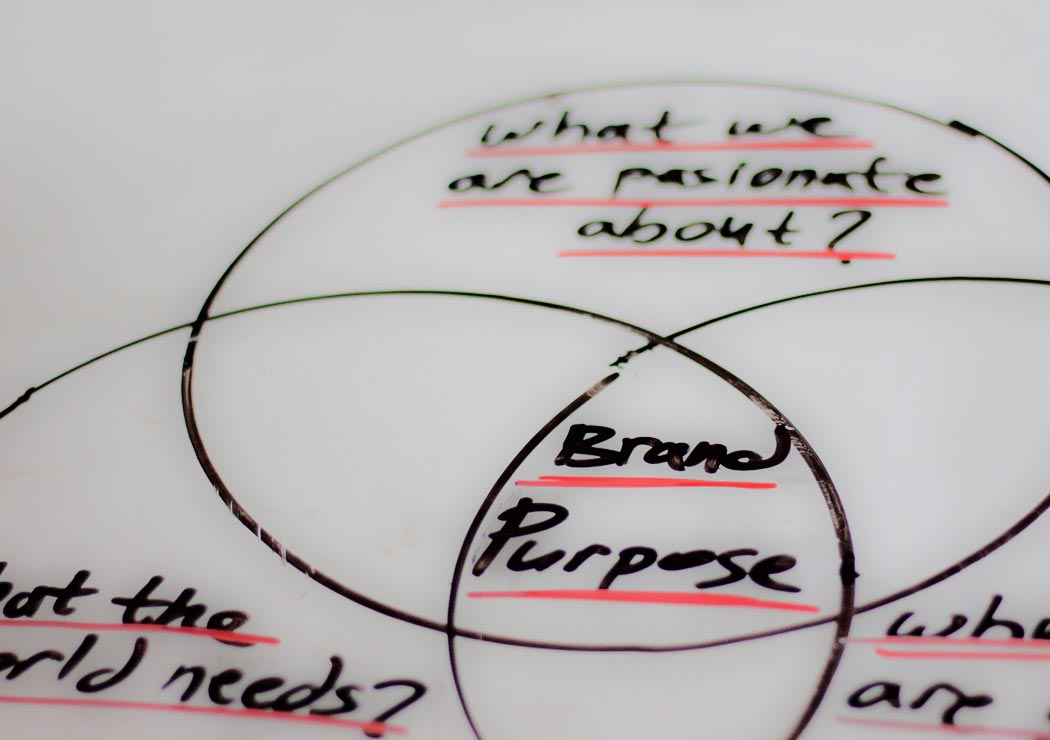 what we
are pasionate
about?
Brand
Purpose
hat the
orld needs?
wh
are